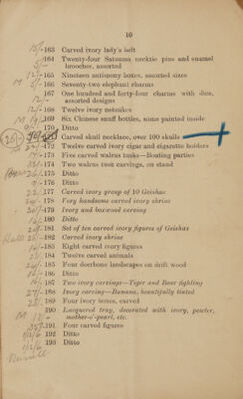 10
15/- 163 Carved ivory lady's belt
164 Twenty-four Satsuma necktie pins and enamel
5/- brooches, assorted
12/- 165 Nineteen antimony boxes, assorted sizes
M 5/- 166 Seventy-two elephant charms
167 One hundred and forty-four charms with dice,
12/- assorted designs
168 Twelve ivory netsukes
M 169 Six Chinese snuff bottles, some painted inside
170 Ditto
Carved skull necklace, over 100 skulls
172 Twelve carved ivory cigar and cigarette holders
173 Five carved walrus tusks—Boating parties
174 Two walrus iron carvings, on stand
175 Ditto
176 Ditto
177 Carved ivory group of 10 Geishas
178 Very handsome carved ivory shrine
179 Ivory and boxwood carving
180 Ditto
181 Set of ten carved ivory figures of Geishas
182 Carved ivory shrine
183 Eight carved ivory figures
184 Twelve carved animals
185 Four deerhone landscapes on drift wood
186 Ditto
187 Two ivory carvings—Tiger and Bear fighting
188 Ivory carving—Banana, beautifully tinted
189 Four ivory boxes, carved
190 Lacquered tray, decorated with ivory, pewter,
M mother-o'-pearl, etc.
191 Four carved figures
192 Ditto
193 Ditto